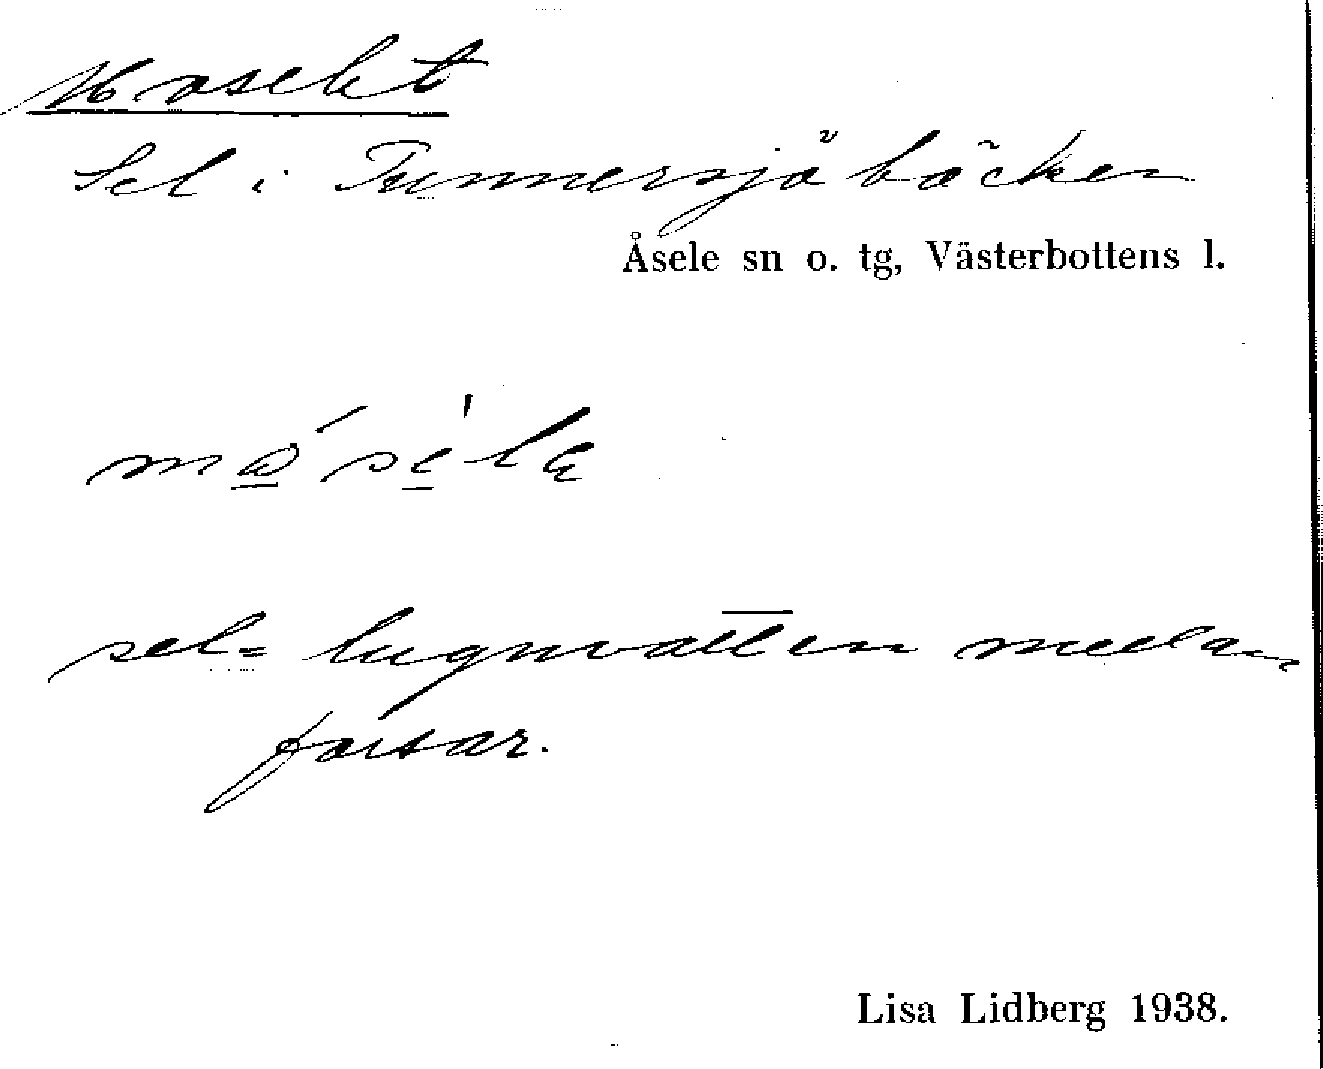 Moselet
Sel i Tunnersjöbäcken
Åsele sn o. tg, Västerbottens l.
sel= lugnvatten mellan
forsar.
Lisa Lidberg 1938.